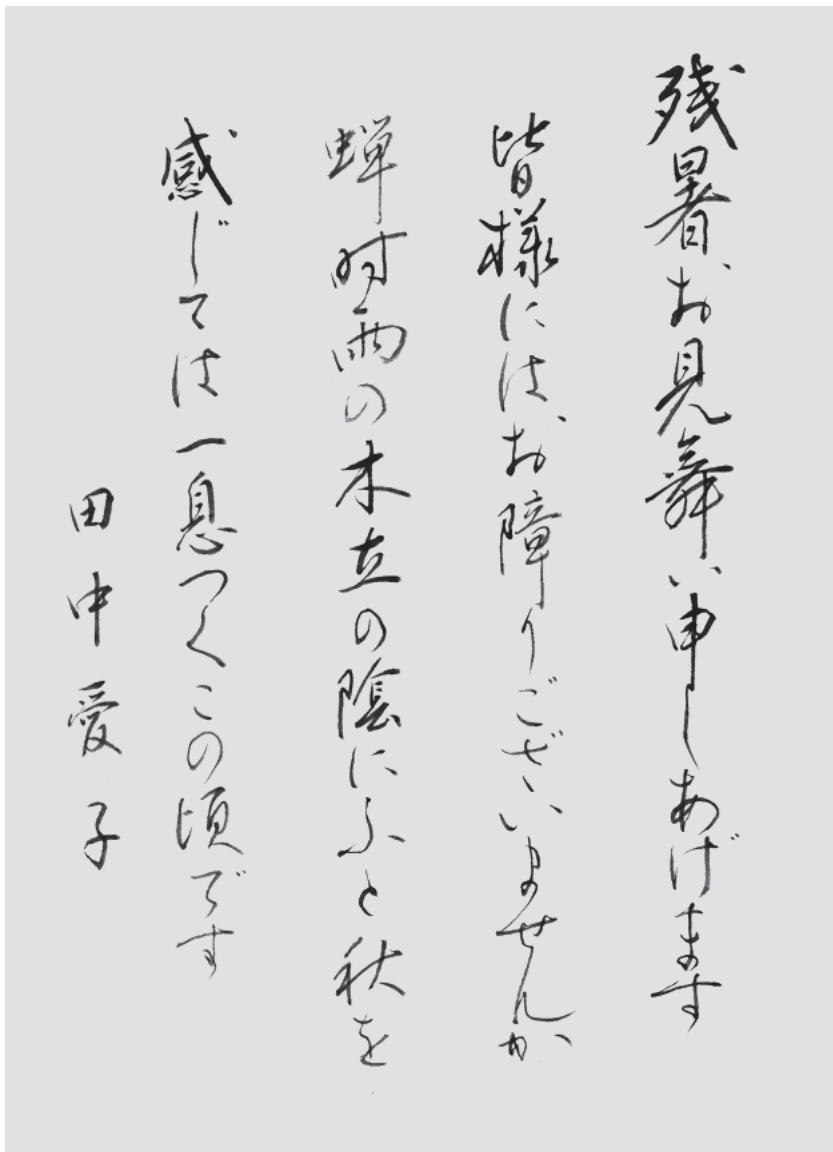 残暑お見舞い申しあげます
皆様にはお障りございませんか
蝉時雨の木立の陰にふと秋を
感じては一息つくこの頃です
田中愛子